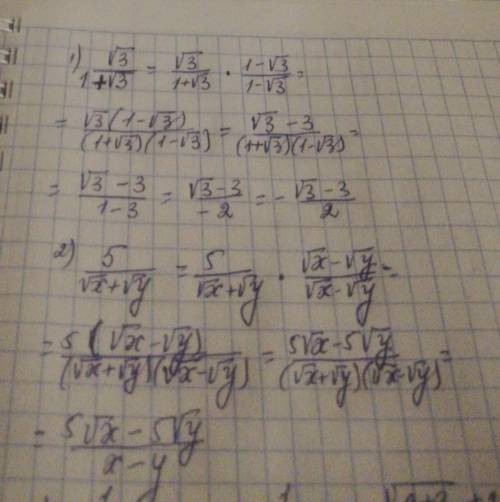 1) √3/(1+√3) = √3/(1+√3) · (1-√3)/(1-√3) =
= √3(1-√3)/((1+√3)(1-√3)) = (√3-3)/((1+√3)(1-√3)) =
= (√3-3)/(1-3) = (√3-3)/(-2) = -(√3-3)/2
2) 5/(√x+√y) = 5/(√x+√y) · (√x-√y)/(√x-√y) =
= 5(√x-√y)/((√x+√y)(√x-√y)) = (5√x-5√y)/((√x+√y)(√x-√y)) =
= (5√x-5√y)/(x-y)